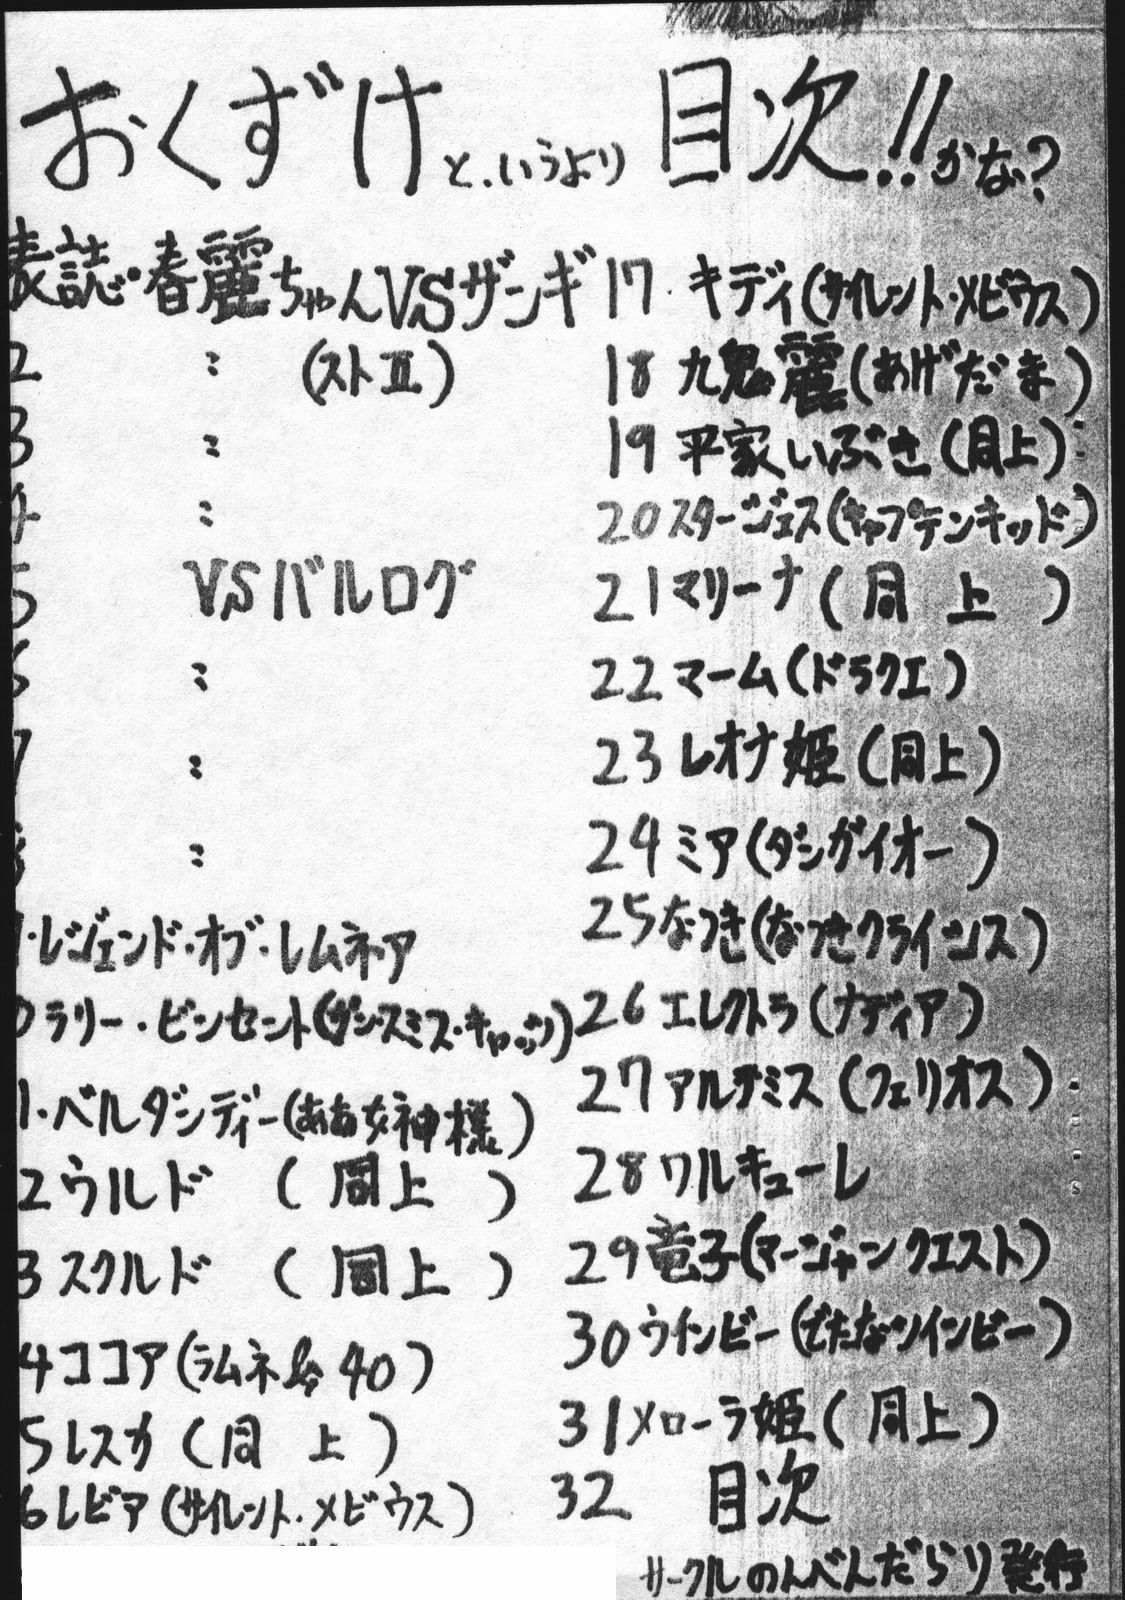 おくずけと、いうより 目次!!かな?
表誌・春麗ちゃんVSザンギ
2 〃 (ストⅡ)
3 〃
4 〃
5 VSバルログ
6 〃
7 〃
8 〃
・レジェンド・オブ・レムネア
0 ラリー・ビンセント(ガン・スミス・キャッツ)
1・ベルダンディー(ああ女神様)
2 ウルド (同上)
3 スクルド (同上)
4 ココア(ラムネ&40)
5 レスカ(同上)
6 レビア(サイレント・メビウス)
17 キディ(サイレント・メビウス)
18 九鬼麗(あげだま)
19 平家いぶき(同上)
20 スタージェス(キャプテンキッド)
21 マリーナ(同上)
22 マーム(ドラクエ)
23 レオナ姫(同上)
24 ミア(ダンガイオー)
25 なつき(なつきクライシス)
26 エレクトラ(ナディア)
27 アルテミス(フェリオス)
28 ワルキューレ
29 竜子(マージャンクエスト)
30 ウインビー(でたなツインビー)
31 メローラ姫(同上)
32 目次
サークルのんべんだらり発行